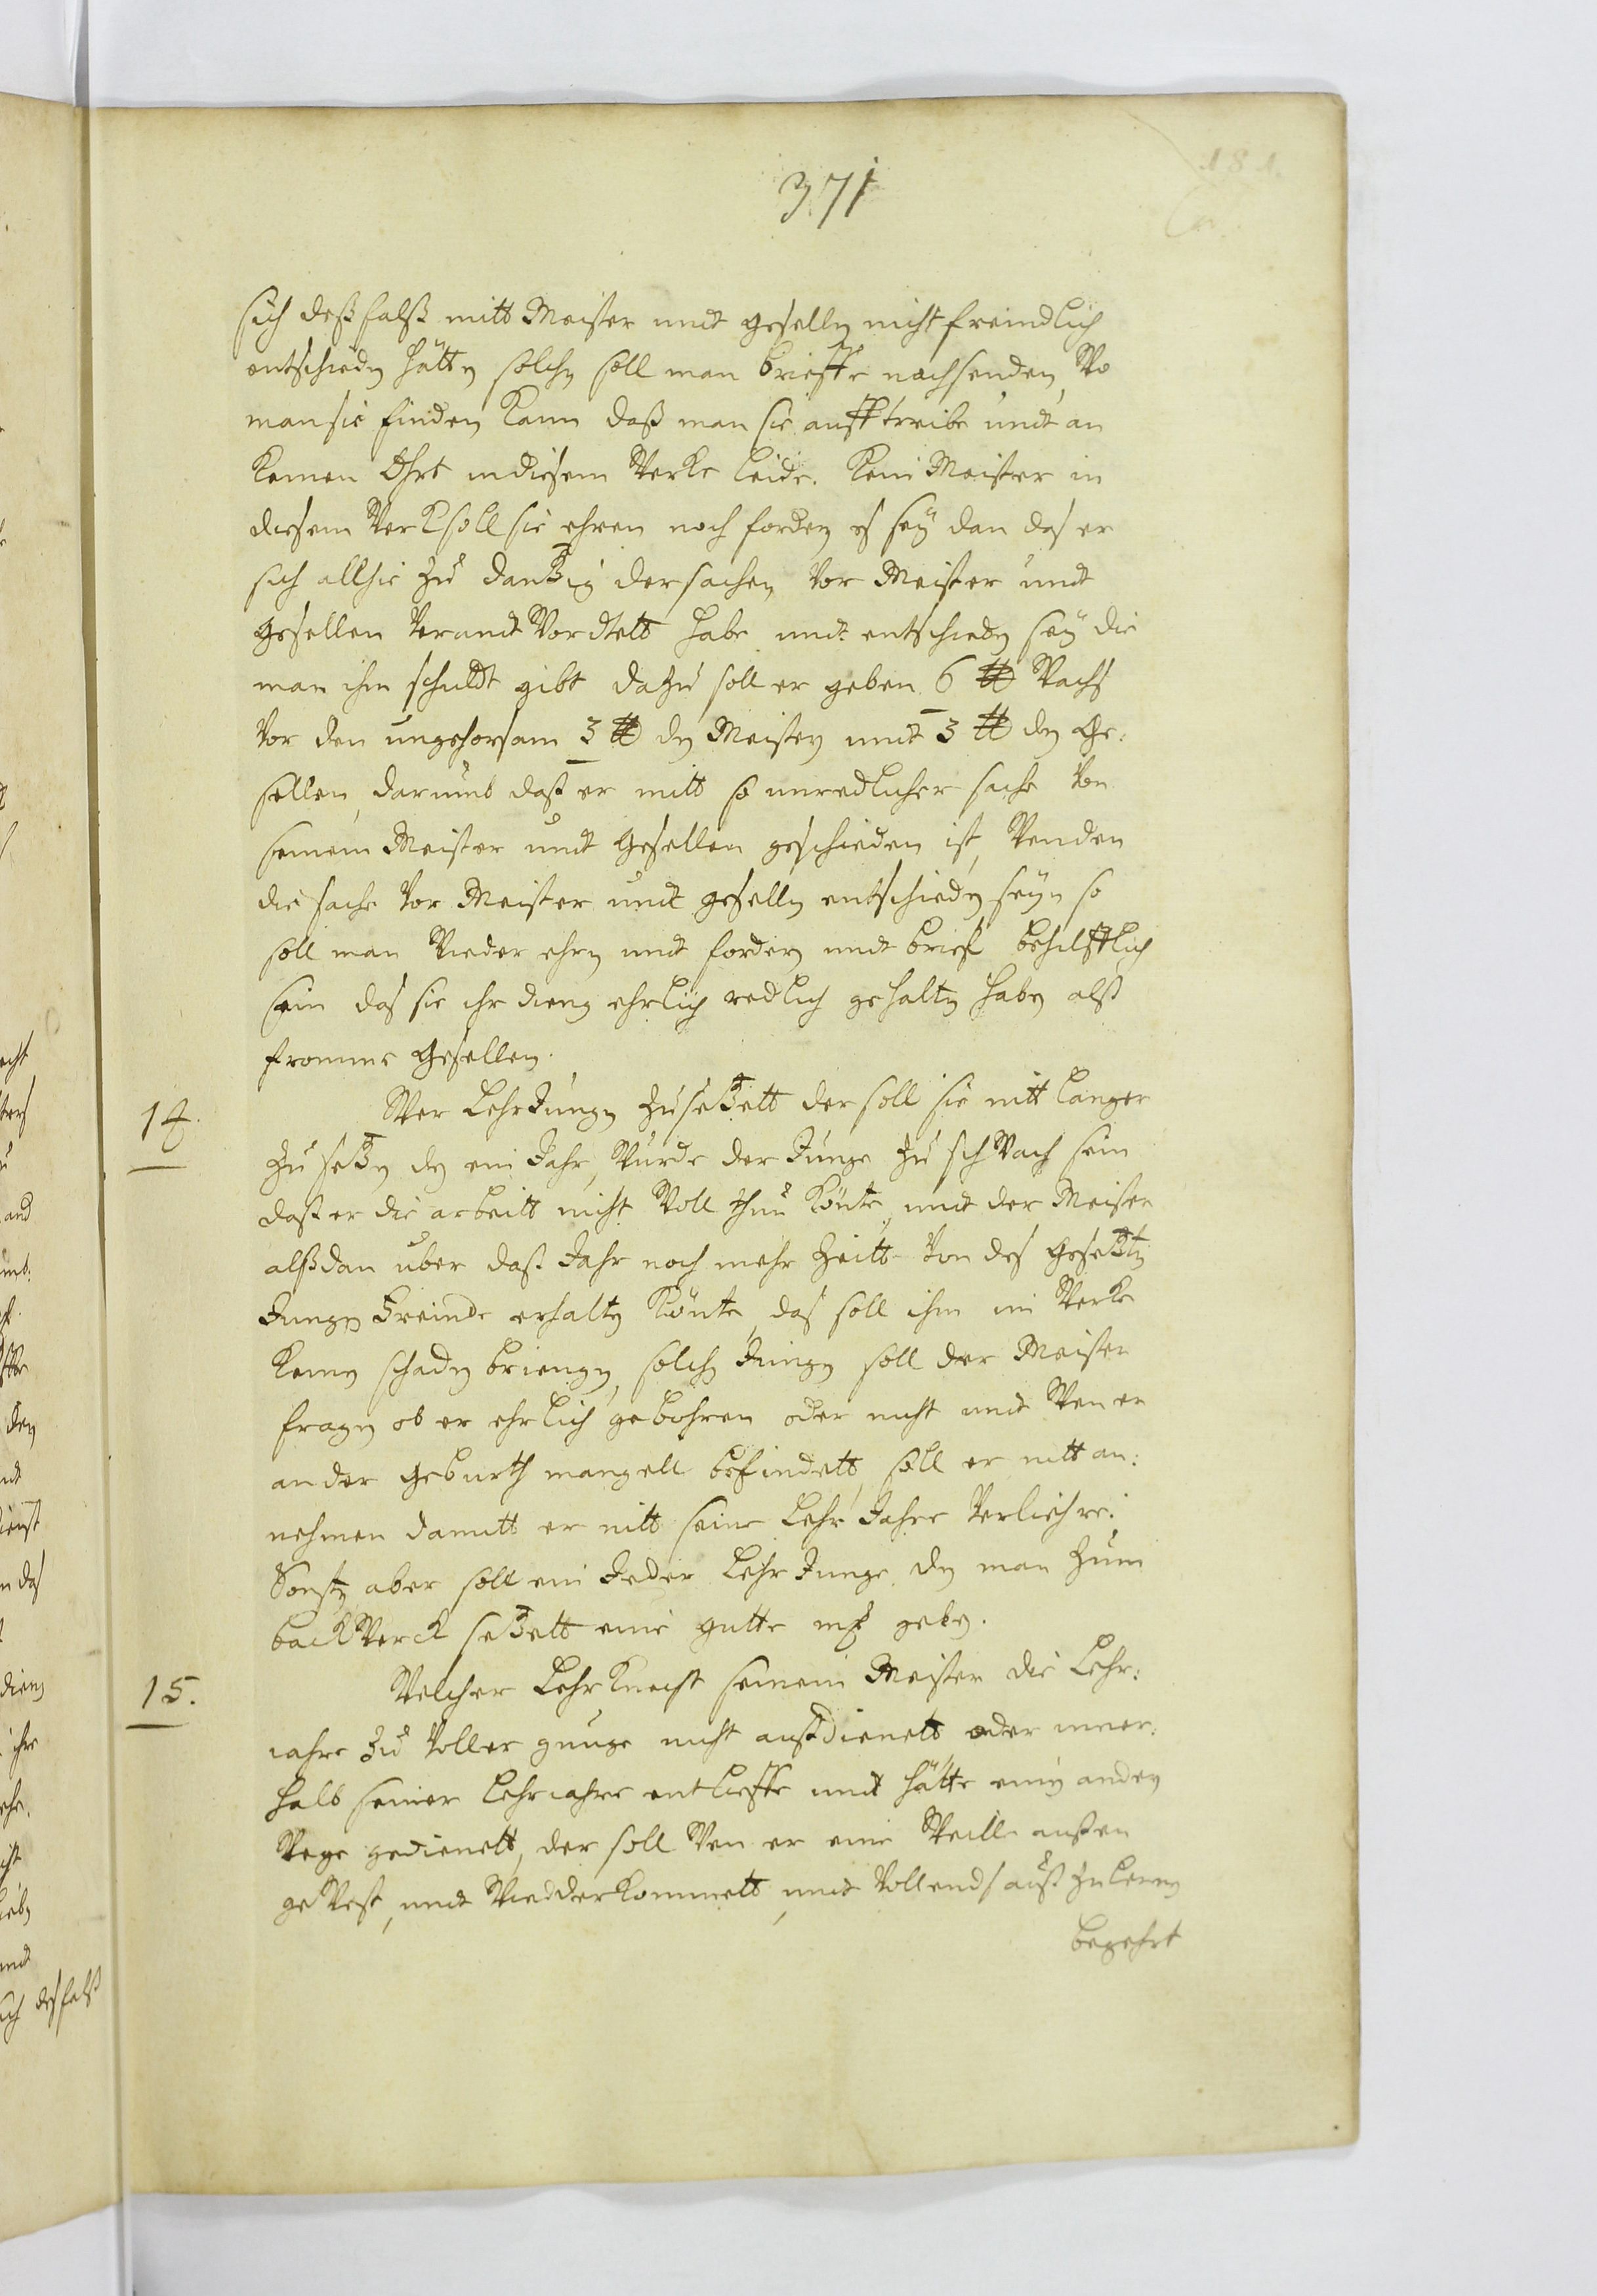 371
181.
sich deßfalß mitt Meister undt geselln nicht freindlich
entschiedn hättn solchn soll man brieffe nachsenden, Wo
man sie finden kann daß man sie aufftreibe undt an
keinen Ohrt in diesem Werke leide. Kein Meister in
diesem Werk soll sie ehren noch fordern es seÿ dan das er
sich allhie zu dantzig der sachen vor Meister undt
Gesellen Verandtwordtett habe undt entschiedn seÿ die
man ihm schuldt gibt dazu soll er geben 6 ℔ Wachs
vor den ungehorsam 3 ℔ dn Meistern undt 3 ℔ dn Ge:
sellen, darumb daß er mitt so unredlicher sache von
seinem Meister undt Gesellen geschieden ist, Wenden
die sache vor Meister undt geselln entschiedn seÿn so
soll man Wieder ehrn undt fordern undt brieff behilfflich
sein das sie ihr dieng ehrlich redlich gehaltn habn alß
fromme Gesellen.
14. Wer LehrJungn zusetzett der soll sie nitt langer
zu setzn dn ein Jahr, Wurde der Junge zu schWach sein
daß er die arbeitt nicht Woll thun könte, undt der Meister
alßdan uber daß Jahr noch mehr Zeitt von des gesetztn
Jungn Freinde erhaltn könte, das soll ihm im Werke
keinen schadn briengn, solchn Jungn soll der Meister
fragn ob er ehrlich gebohren oder nicht undt Wen er
an der Geburth mangell befindett, soll er nitt an:
nehmen damitt er nitt seine Lehr Jahre Verliehre.
Sonstn aber soll ein Jeder Lehr Junge dn man zum
backWerck setzett eine gutte mk geben.
15. Welcher Lehr Knecht seinem Meister die Lehr:
iahre zu voller gnuge nicht außdienett oder inner:
halb seiner Lehriahre entlieffe undt hätte einen andern
Wege gedienett, der soll Wen er eine Weille außen
geWest, undt Wiedderkommett, undt Vollends auß zulernen
begehrt